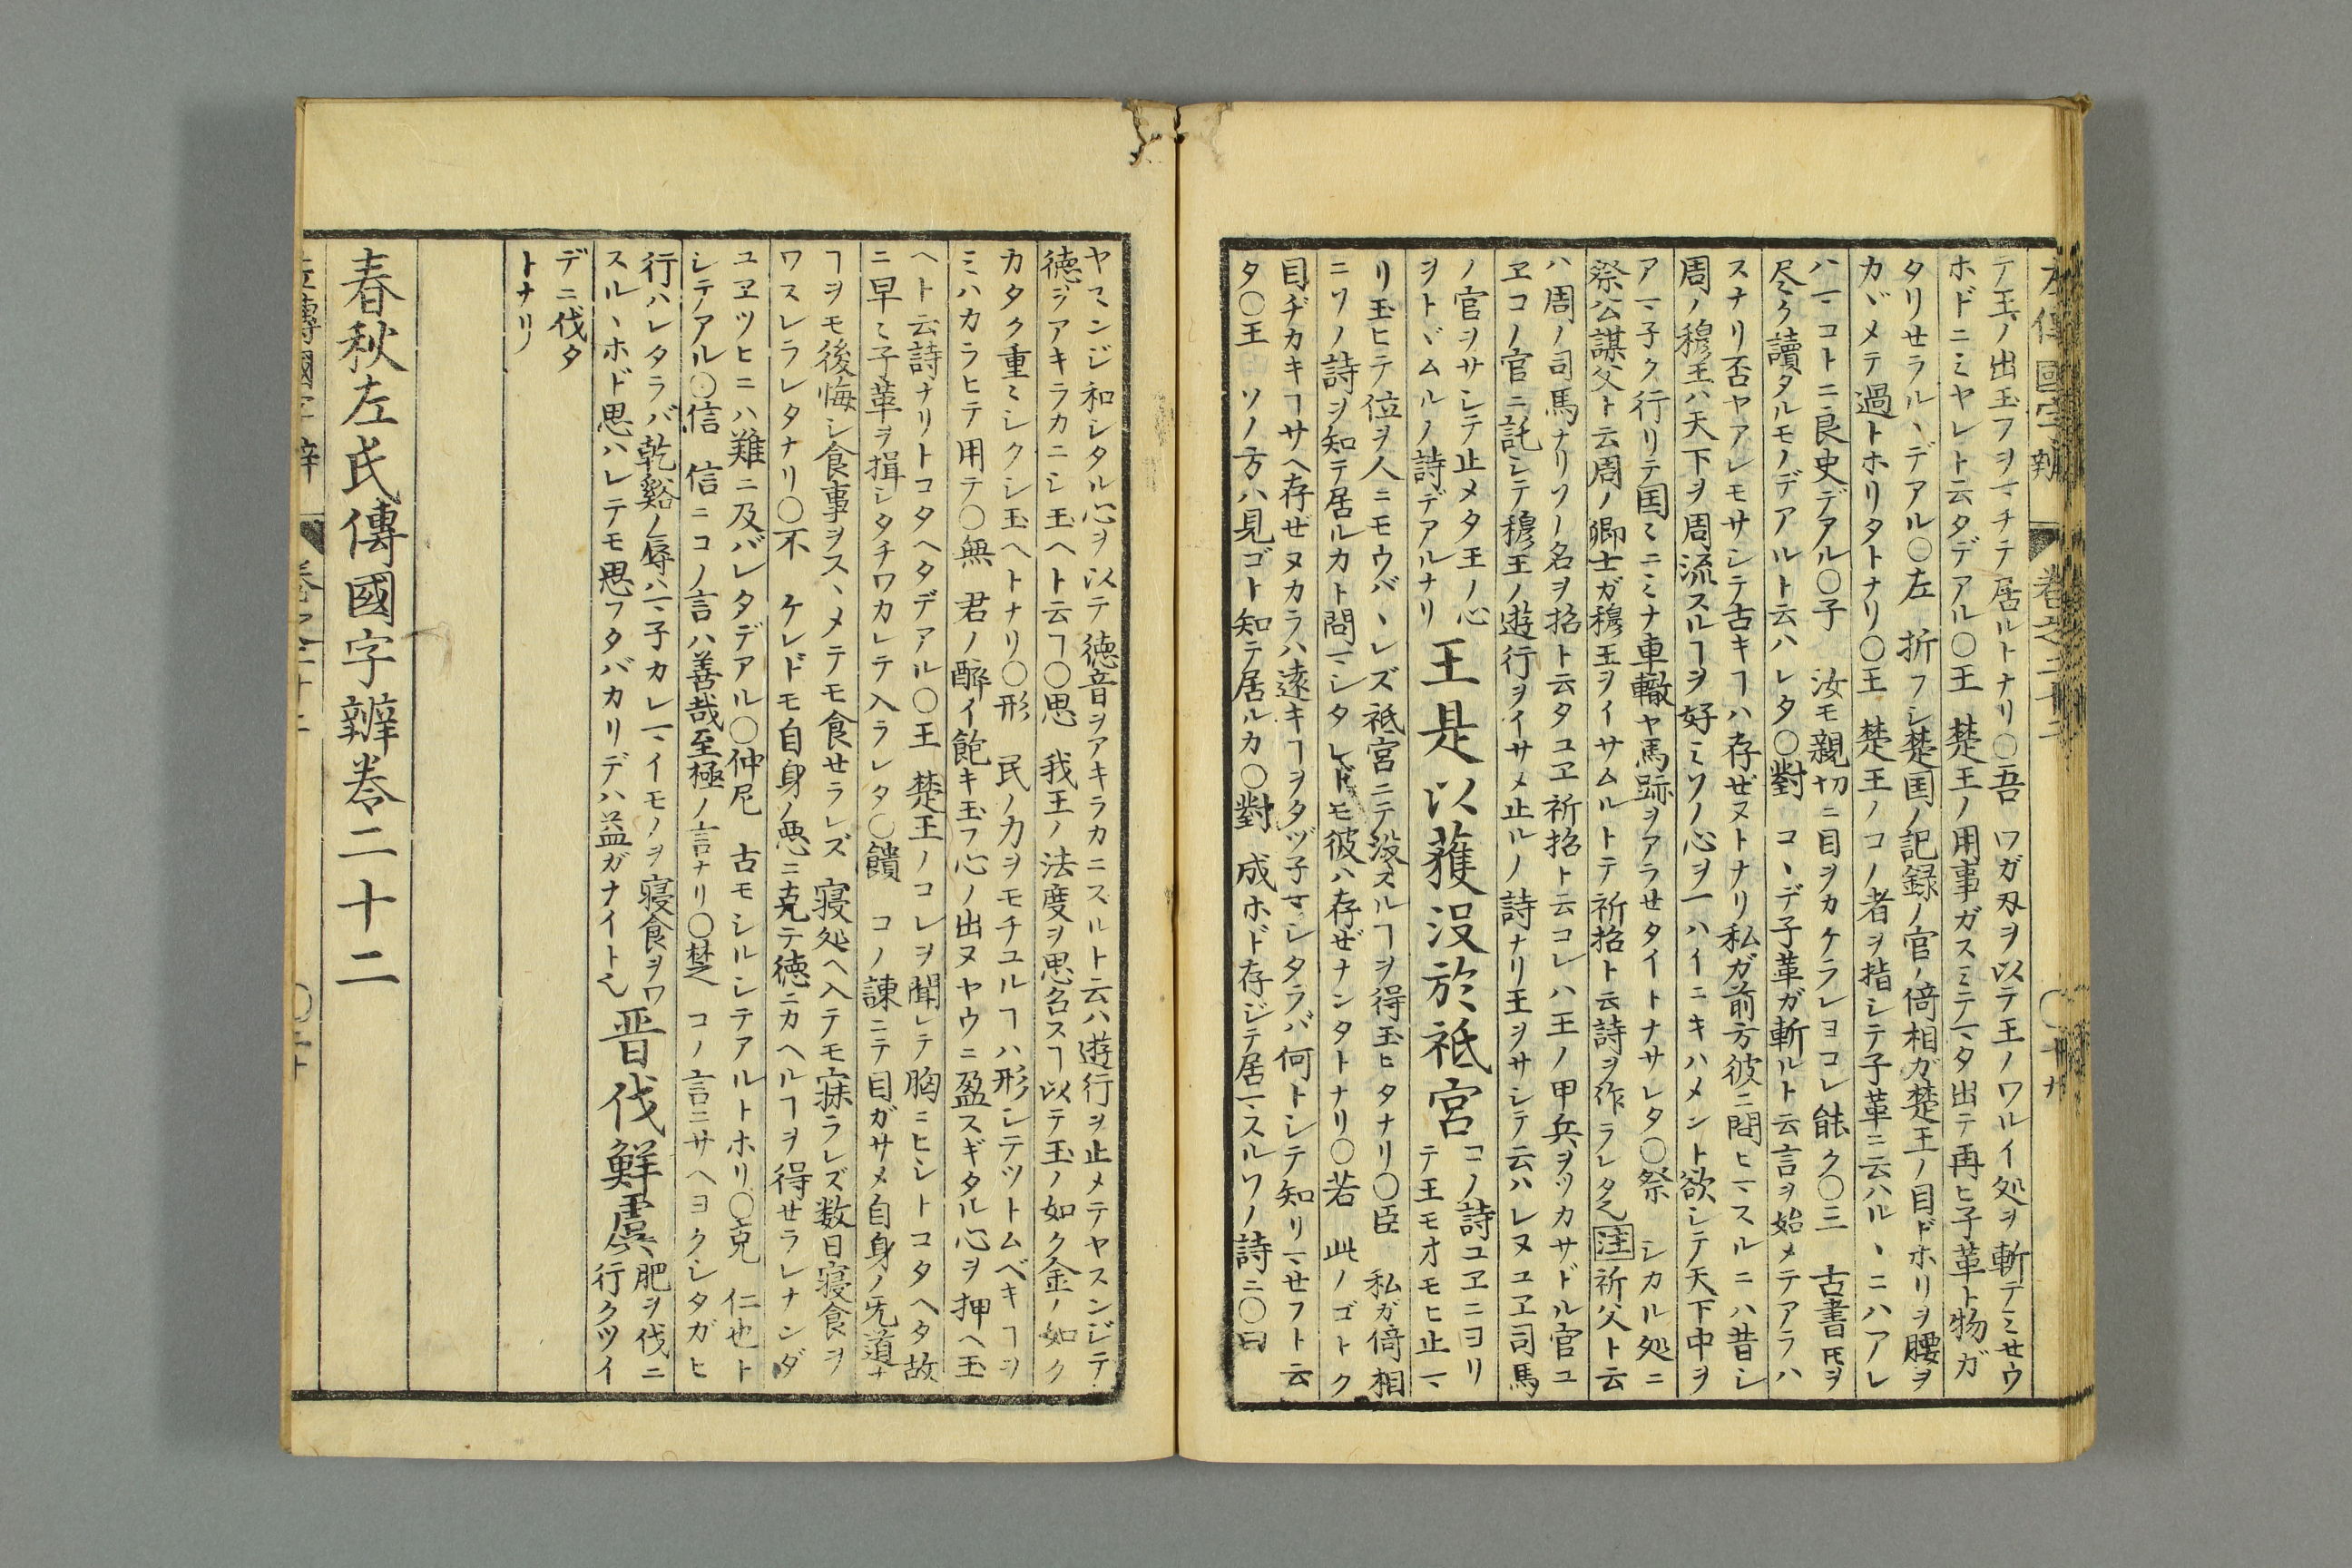 左傳國字辨 卷之二十二 〇十九
テ玉ノ出玉フヲマチテ居ルトナリ〇吾 ワガ刄ヲ以テ王ノワルイ処ヲ斬テミせウ
ホドニミヤレト云タデアル〇王 楚王ノ用事ガスミテマタ出テ再ヒ子革ト物ガ
タリせラルヽデアル〇左 折フシ楚国ノ記録ノ官ノ倚相ガ楚王ノ目ドホリヲ腰ヲ
カヾメテ過トホリタトナリ〇王 楚王ノコノ者ヲ指シテ子革ニ云ハルヽニハアレ
ハマコトニ良史デアル〇子 汝モ親切ニ目ヲカケラレヨコレ能ク〇三 古書𪜈ヲ
尽ク讀タルモノデアルト云ハレタ〇對 コヽデ子革ガ斬ルト云言ヲ始メテアラハ
スナリ否ヤアレモサシテ古キヿハ存ぜヌトナリ私ガ前方彼ニ問ヒマスルニハ昔シ
周ノ穆王ハ天下ヲ周流スルヿヲ好ミソノ心ヲ一ハイニキハメント欲シテ天下中ヲ
アマ子ク行リテ国ミニミナ車轍ヤ馬跡ヲアラせタイトナサレタ〇祭 シカル処ニ
祭公謀父ト云周ノ卿士ガ穆王ヲイサムルトテ祈招ト云詩ヲ作ラレタ也 注 祈父ト云
ハ周ノ司馬ナリソノ名ヲ招ト云タユヱ祈招ト云コレハ王ノ甲兵ヲツカサドル官ユ
ヱコノ官ニ託シテ穆王ノ遊行ヲイサメ止ルノ詩ナリ王ヲサシテ云ハレヌユヱ司馬
ノ官ヲサシテ止メタ王ノ心
ヲトヾムルノ詩デアルナリ
王是以蒦没於祗宮
コノ詩ユヱニヨリ
テ王モオモヒ止マ
リ玉ヒテ位ヲ人ニモウバヽレズ祗宮ニテ没スルヿヲ得玉ヒタナリ〇臣 私ガ倚相
ニソノ詩ヲ知テ居ルカト問マシタレドモ彼ハ存ぜナンタトナリ〇若 此ノゴトク
目ヂカキヿサヘ存ぜヌカラハ遠キヿヲタヅ子マシタラバ何トシテ知リマせフト云
タ〇王 ソノ方ハ見ゴト知テ居ルカ〇對 成ホド存ジテ居マスルソノ詩ニ〇曰
ヤマンジ和シタル心ヲ以テ徳音ヲアキラカニスルト云ハ遊行ヲ止メテヤスンジテ
徳ヲアキラカニシ玉ヘト云ヿ〇思 我王ノ法度ヲ思召スヿ以テ玉ノ如ク金ノ如ク
カタク重ミシクシ玉ヘトナリ〇形 民ノ力ヲモチユルヿハ形シテツトムベキヿヲ
ミハカラヒテ用テ〇無 君ノ酔イ飽キ玉フ心ノ出ヌヤウニ盈スギタル心ヲ押ヘ玉
ヘト云詩ナリトコタヘタデアル〇王 楚王ノコレヲ聞レテ胸ニヒシトコタヘタ故
ニ早ミ子革ヲ揖シタチワカレテ入ラレタ〇饋 コノ諌ニテ目ガサメ自身ノ旡道ナ
ヿヲモ後悔シ食事ヲスヽメテモ食せラレズ 寝処ヘ入テモ寐ラレズ数日寝食ヲ
ワスレラレタナリ〇不 ケレドモ自身ノ悪ニ克テ徳ニカヘルヿヲ得せラレナンダ
ユヱツヒニハ難ニ及バレタデアル〇仲尼 古モシルシテアルトホリ〇克 仁也ト
シテアル〇信 信ニコノ言ハ善哉至極ノ言ナリ〇楚 コノ言ニサヘヨクシタガヒ
行ハレタラバ乾谿ノ辱ハマ子カレマイモノヲ寝食ヲワ
スルヽホド思ハレテモ思フタバカリデハ益ガナイト也
晋伐鮮虞
肥ヲ伐ニ
行クツイ
デニ伐タ
トナリ
春秋左氏傳國字辨卷二十二